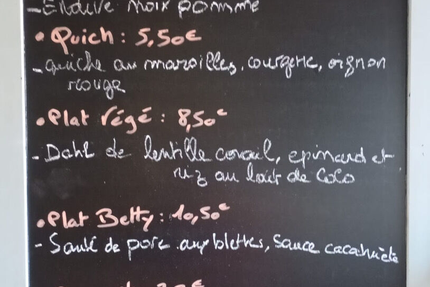 - Endive noix pomme
• Quich : 5,50€
- quiche au maroilles, courgette, oignon
rouge
• Plat Végé : 8,50€
- Dahl de lentille corail, epinard et
riz au lait de coco
• Plat Betty : 10,50€
- Sauté de porc aux blettes, sauce cacahuète